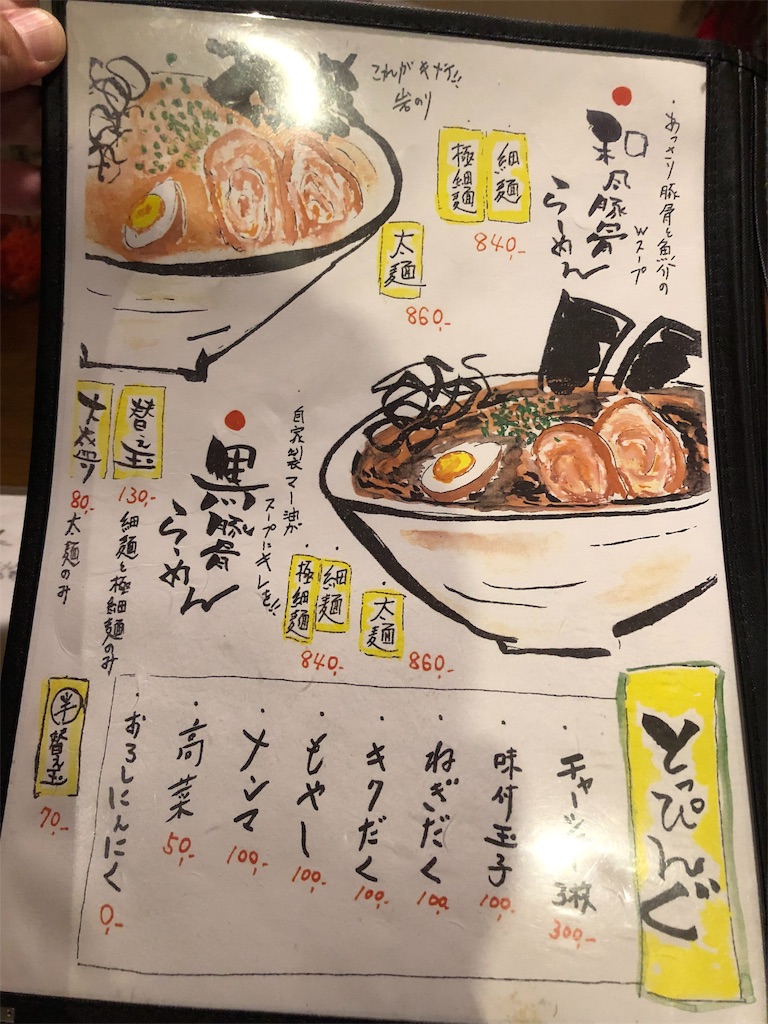 ・あっさり豚骨と魚介の
Wスープ
和風豚骨
らーめん
細麺
極細麺
840,-
太麺
860,-
これがキメ手!!
岩のり
・自家製マー油が
スープにキレを!!
黒豚骨
らーめん
細麺
極細麺
840,-
太麺
860,-
替え玉
130,-
細麺と極細麺のみ
大盛り
80,-
太麺のみ
半替え玉
70,-
とっぴんぐ
・チャーシュー3枚
300,-
・味付玉子
100,-
・ねぎだく
100,-
・キクだく
100,-
・もやし
100,-
・メンマ
100,-
・高菜
50,-
・おろしにんにく
0,-